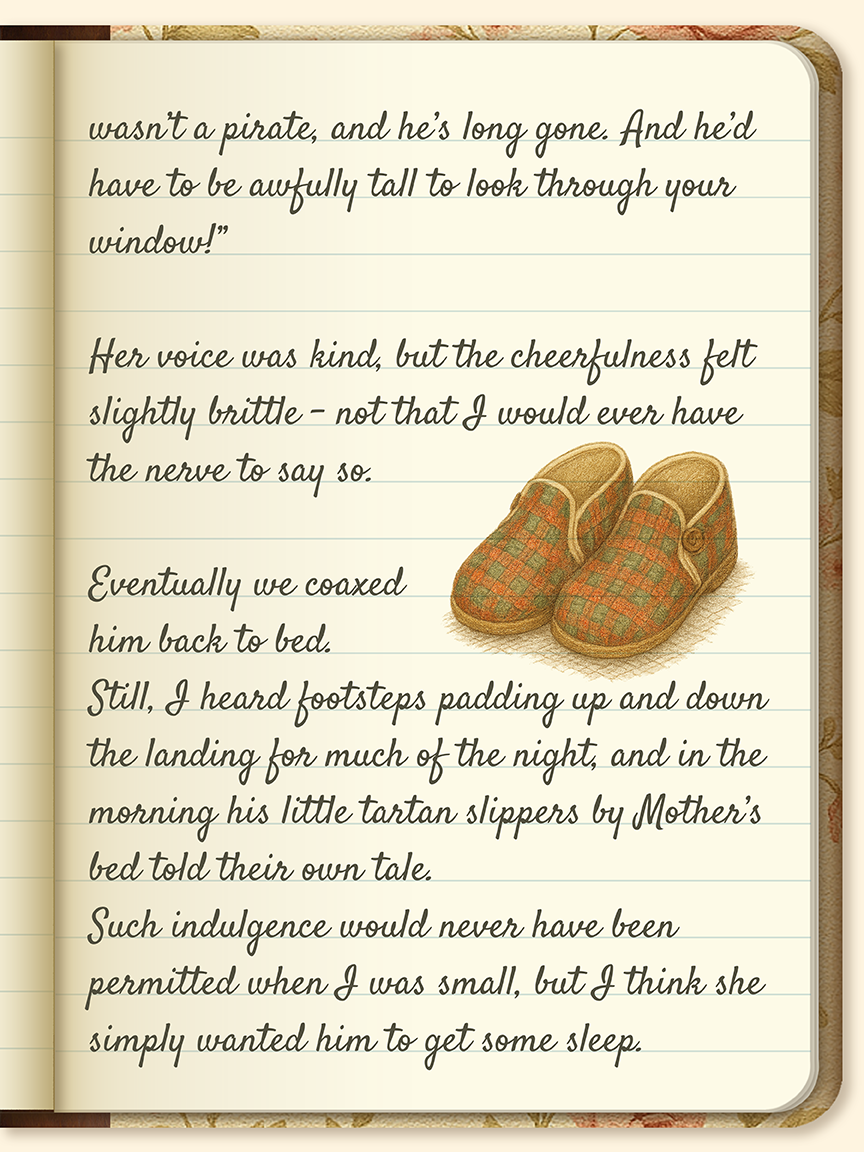 wasn’t a pirate, and he’s long gone. And he’d
have to be awfully tall to look through your
window!”
Her voice was kind, but the cheerfulness felt
slightly brittle – not that I would ever have
the nerve to say so.
Eventually we coaxed
him back to bed.
Still, I heard footsteps padding up and down
the landing for much of the night, and in the
morning his little tartan slippers by Mother’s
bed told their own tale.
Such indulgence would never have been
permitted when I was small, but I think she
simply wanted him to get some sleep.